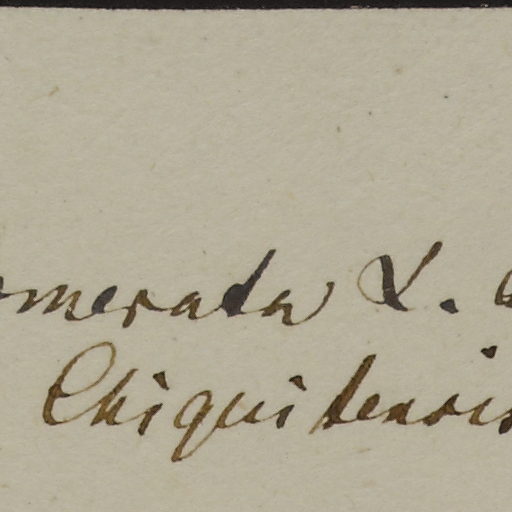 omerata L.
Chiquitensis